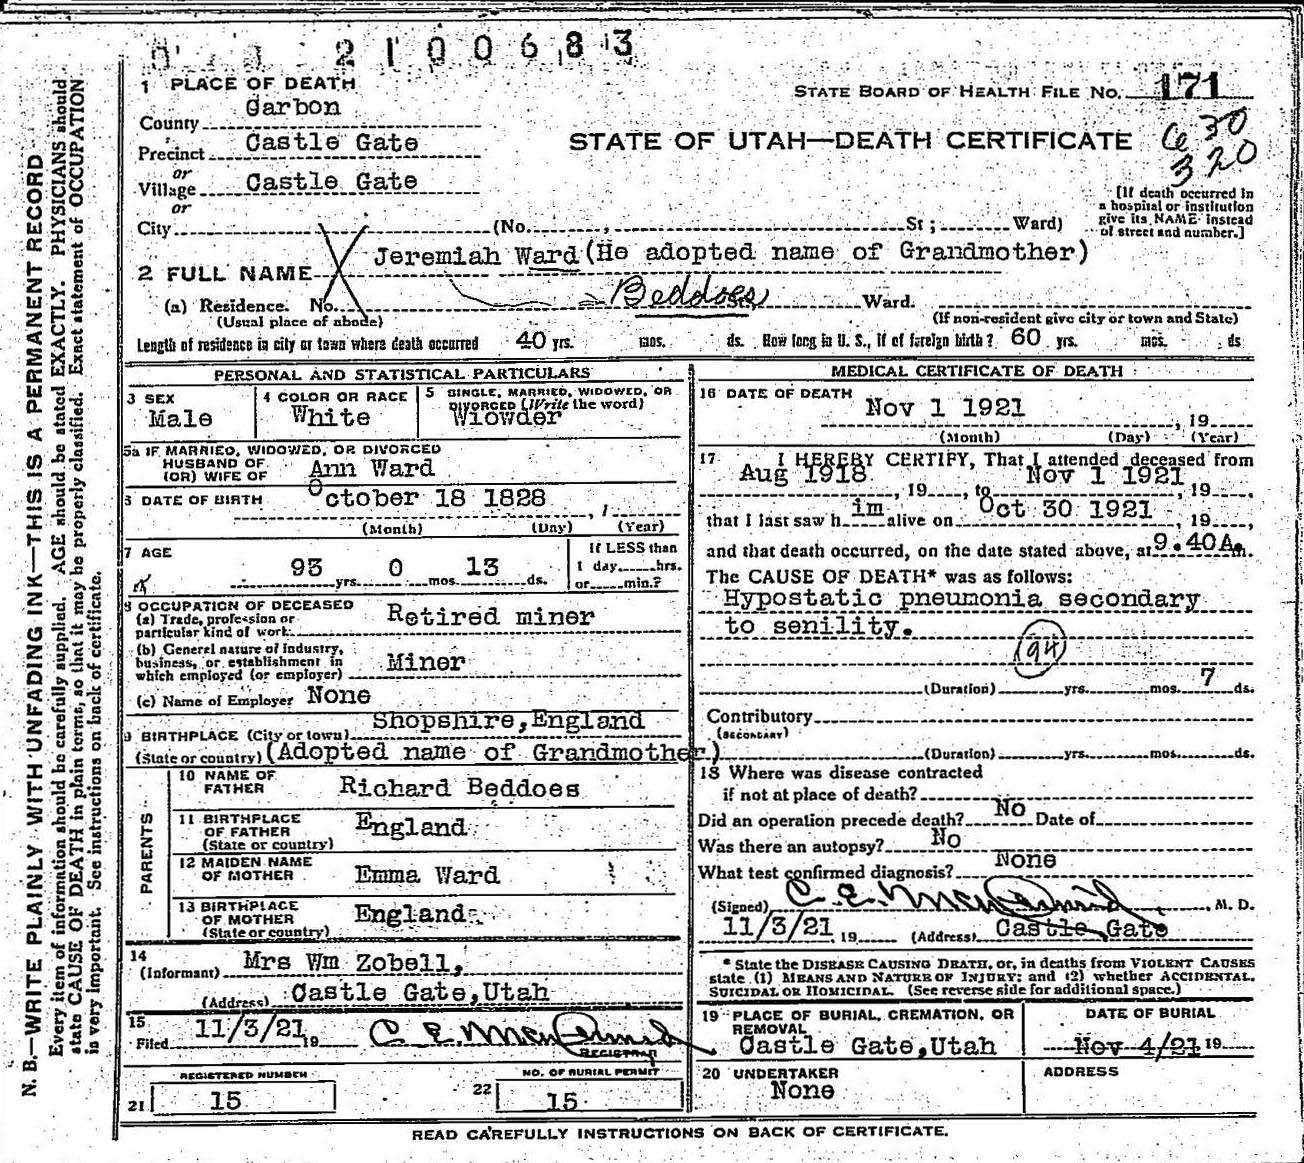 2100683
1 PLACE OF DEATH
STATE BOARD OF HEALTH FILE No. 171
County Garbon
STATE OF UTAH—DEATH CERTIFICATE
Precinct Castle Gate
30
320
or
Village Castle Gate
or
[If death occurred in
a hospital or institution
give its NAME instead
of street and number.]
City (No. , St ; Ward)
Jeremiah Ward (He adopted name of Grandmother)
2 FULL NAME
Beddoes
(a) Residence. No. Ward.
(Usual place of abode)
(If non-resident give city or town and State)
Length of residence in city or town where death occurred 40 yrs. mos. ds. How long in U. S., if of foreign birth? 60 yrs. mos. ds
PERSONAL AND STATISTICAL PARTICULARS
3 SEX
Male
4 COLOR OR RACE
White
5 SINGLE, MARRIED, WIDOWED, OR
DIVORCED (Write the word)
Wiowder
5a IF MARRIED, WIDOWED, OR DIVORCED
HUSBAND OF
(OR) WIFE OF Ann Ward
6 DATE OF BIRTH October 18 1828
(Month) (Day) (Year)
7 AGE
93 yrs. 0 mos. 13 ds.
If LESS than
1 day hrs.
or min.?
8 OCCUPATION OF DECEASED
(a) Trade, profession or
particular kind of work Retired miner
(b) General nature of industry,
business, or establishment in
which employed (or employer) Miner
(c) Name of Employer None
Shopshire, England
9 BIRTHPLACE (City or town)
(State or country) (Adopted name of Grandmother)
PARENTS
10 NAME OF
FATHER Richard Beddoes
11 BIRTHPLACE
OF FATHER England
(State or country)
12 MAIDEN NAME
OF MOTHER Emma Ward
13 BIRTHPLACE
OF MOTHER England
(State or country)
14
(Informant) Mrs Wm Zobell,
(Address) Castle Gate, Utah
15
Filed 11/3/21 19 C. E. McDermid
REGISTRAR
REGISTERED NUMBER
21 15
NO. OF BURIAL PERMIT
22 15
MEDICAL CERTIFICATE OF DEATH
16 DATE OF DEATH
Nov 1 1921 , 19
(Month) (Day) (Year)
17 I HEREBY CERTIFY, That I attended deceased from
Aug 1918 , 19 , to Nov 1 1921 , 19 ,
that I last saw h im alive on Oct 30 1921 , 19 ,
and that death occurred, on the date stated above, at 9.40A. m.
The CAUSE OF DEATH* was as follows:
Hypostatic pneumonia secondary
to senility.
(94)
(Duration) yrs. mos. 7 ds.
Contributory
(SECONDARY)
(Duration) yrs. mos. ds.
18 Where was disease contracted
if not at place of death?
Did an operation precede death? No Date of
Was there an autopsy? No
What test confirmed diagnosis? None
(Signed) C. E. McDermid, M. D.
11/3/21 19 (Address) Castle Gate
* State the DISEASE CAUSING DEATH, or, in deaths from VIOLENT CAUSES
state (1) MEANS AND NATURE OF INJURY; and (2) whether ACCIDENTAL,
SUICIDAL OR HOMICIDAL. (See reverse side for additional space.)
19 PLACE OF BURIAL, CREMATION, OR
REMOVAL
Castle Gate, Utah
DATE OF BURIAL
Nov 4/21 19
20 UNDERTAKER
None
ADDRESS
READ CAREFULLY INSTRUCTIONS ON BACK OF CERTIFICATE.
N. B.—WRITE PLAINLY WITH UNFADING INK—THIS IS A PERMANENT RECORD
Every item of information should be carefully supplied. AGE should be stated EXACTLY. PHYSICIANS should
state CAUSE OF DEATH in plain terms, so that it may be properly classified. Exact statement of OCCUPATION
is very important. See instructions on back of certificate.